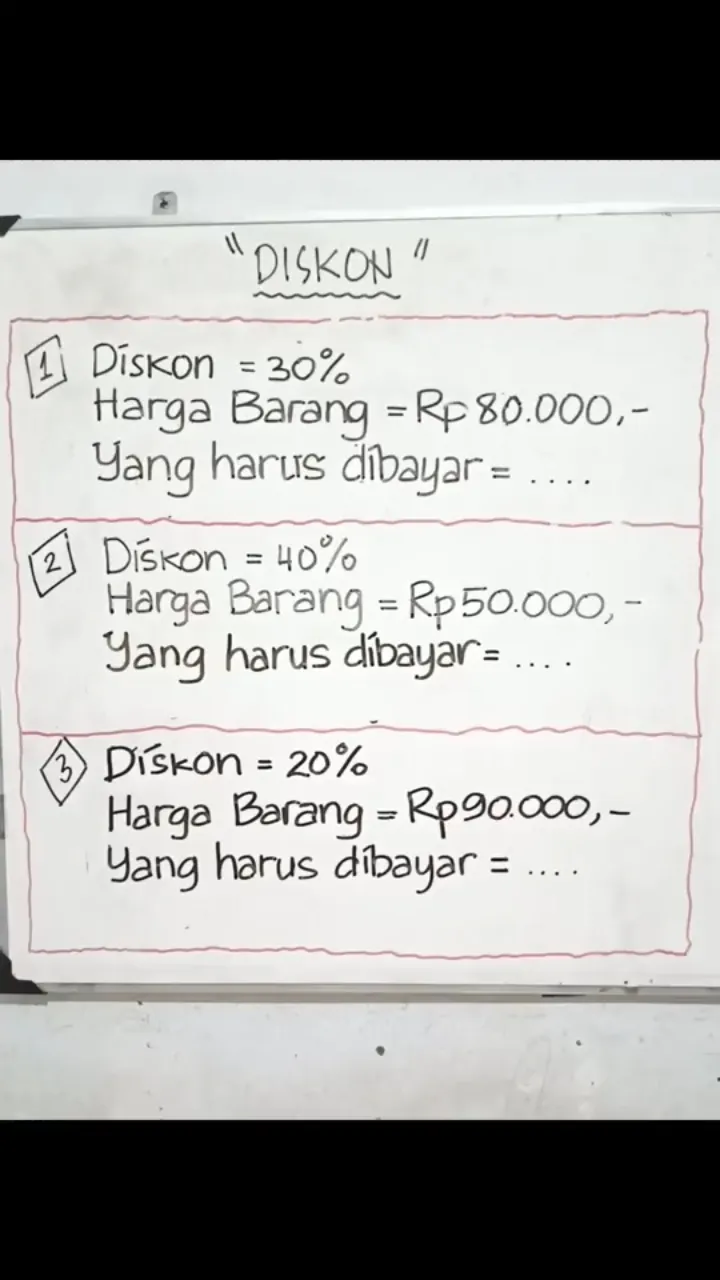 "DISKON"
1 Diskon = 30%
Harga Barang = Rp 80.000,-
Yang harus dibayar = ....
2 Diskon = 40%
Harga Barang = Rp 50.000,-
Yang harus dibayar = ....
3 Diskon = 20%
Harga Barang = Rp 90.000,-
Yang harus dibayar = ....